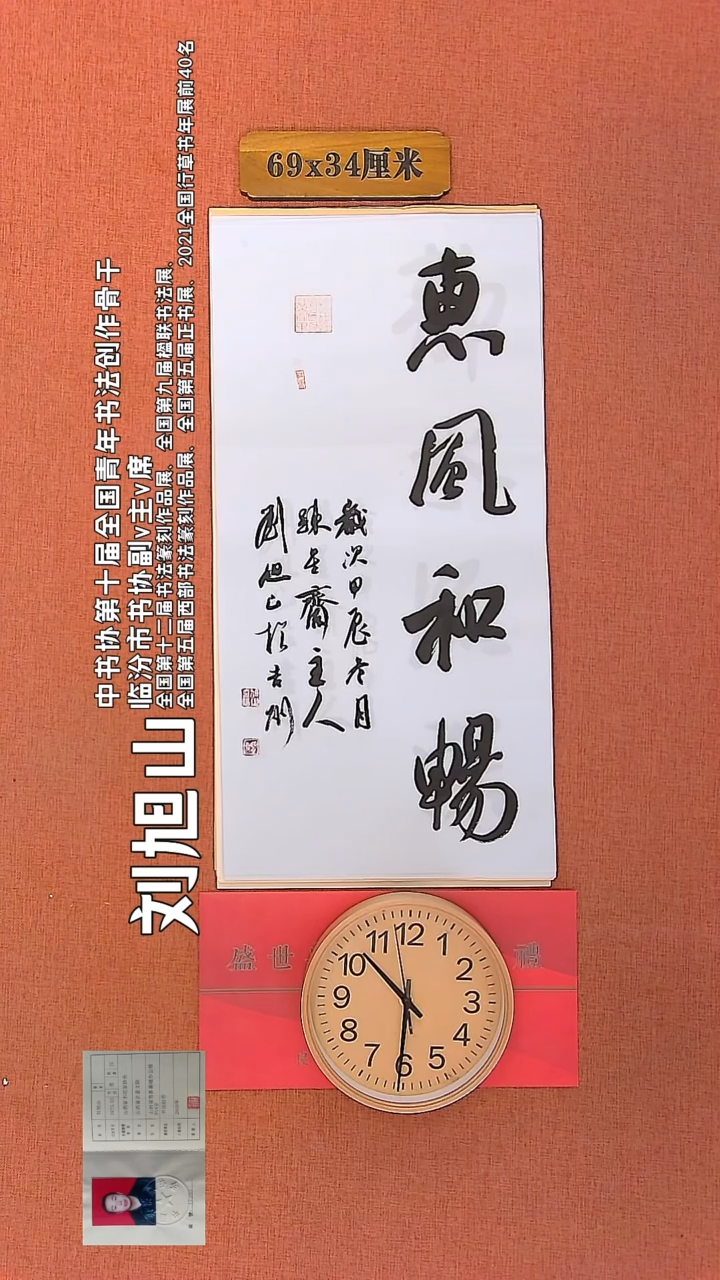 69x34厘米
惠風和暢
歲次甲辰冬月
齋主人
劉旭山於吉州
刘旭山
中书协第十届全国青年书法创作骨干
临汾市书协副v主v席
全国第十二届书法篆刻作品展、全国第九届楹联书法展、
全国第五届西部书法篆刻作品展、全国第五届正书展、2021全国行草书年展前40名
盛世 禮
12
1
2
3
4
5
6
7
8
9
10
11